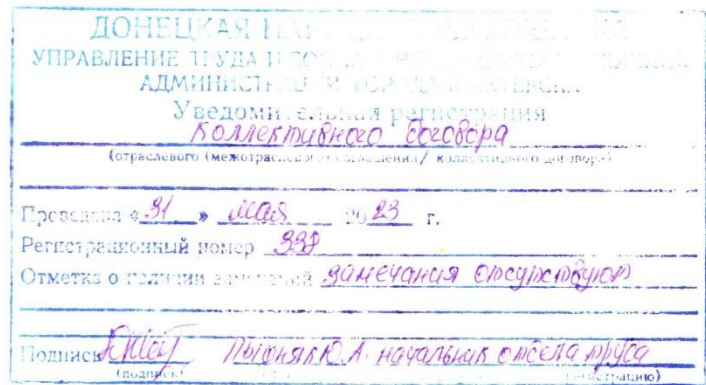 ДОНЕЦКАЯ
УПРАВЛЕНИЕ ТРУДА И
АДМИНИСТРАЦИИ ГОРОДА
Уведомительная регистрация
коллективного договора
(отраслевого (межотраслевого) соглашения/ коллективного договора)
Проведена « 31 » мая 20 23 г.
Регистрационный номер 338
Отметка о наличии замечаний замечания отсутствуют
Подпись Ю.А. начальник отдела труда
(подпись) регистрацию)